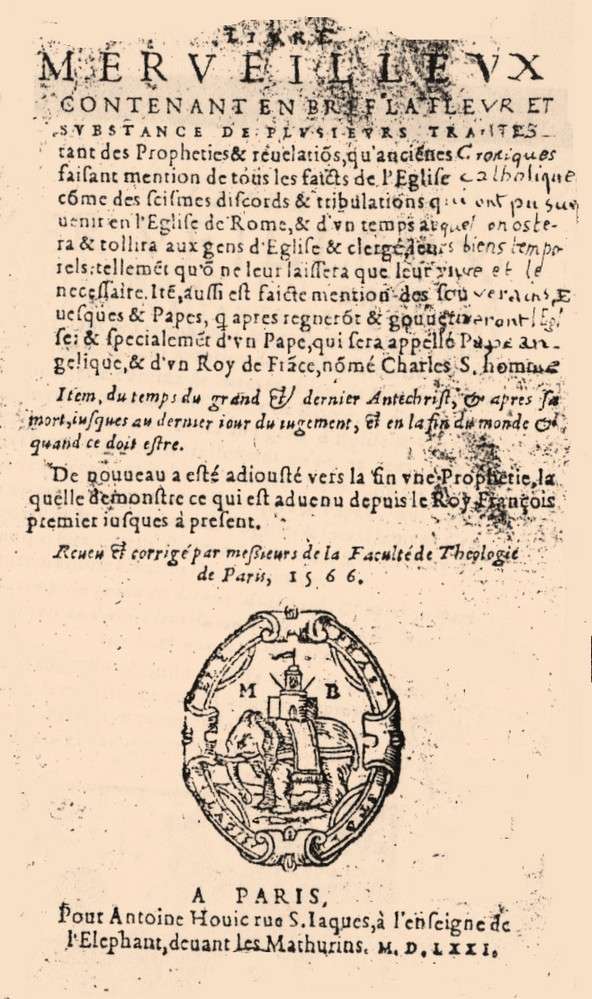 LIVRE
MERVEILLEVX
CONTENANT EN BREF LA FLEVR ET
SVBSTANCE DE PLVSIEVRS TRAITES
tant des Propheties & reuelatiõs, qu'anciẽnes Croniques
faisant mention de tous les faicts de l'Eglise catholique,
cõme des scismes discords & tribulations qui ont pu suru
uenir en l'Eglise de Rome, & d'vn temps auquel on oste-
ra & tollira aux gens d'Eglise & clergé leurs biens tempo
rels: tellemẽt qu'õ ne leur laissera que leur viure et le
necessaire. Itẽ, aussi est faicte mention des souverains E
uesques & Papes, q apres regnerõt & gouuerneront l'Egl
se: & specialemẽt d'vn Pape, qui sera appellé Pape an-
gelique, & d'vn Roy de Frãce, nõmé Charles S. homme
Item, du temps du grand & dernier Antechrist, & apres sa
mort, iusques au dernier iour du iugement, & en la fin du monde &
quand ce doit estre.
De nouueau a esté adiousté vers la fin vne Prophetie, la
quelle demonstre ce qui est aduenu depuis le Roy François
premier iusques à present.
Reueu & corrigé par messieurs de la Faculté de Theologie
de Paris, 1566.
M B
A PARIS,
Pour Antoine Houic rue S. Iaques, à l'enseigne de
l'Elephant, deuant les Mathurins. M. D. LXXI.